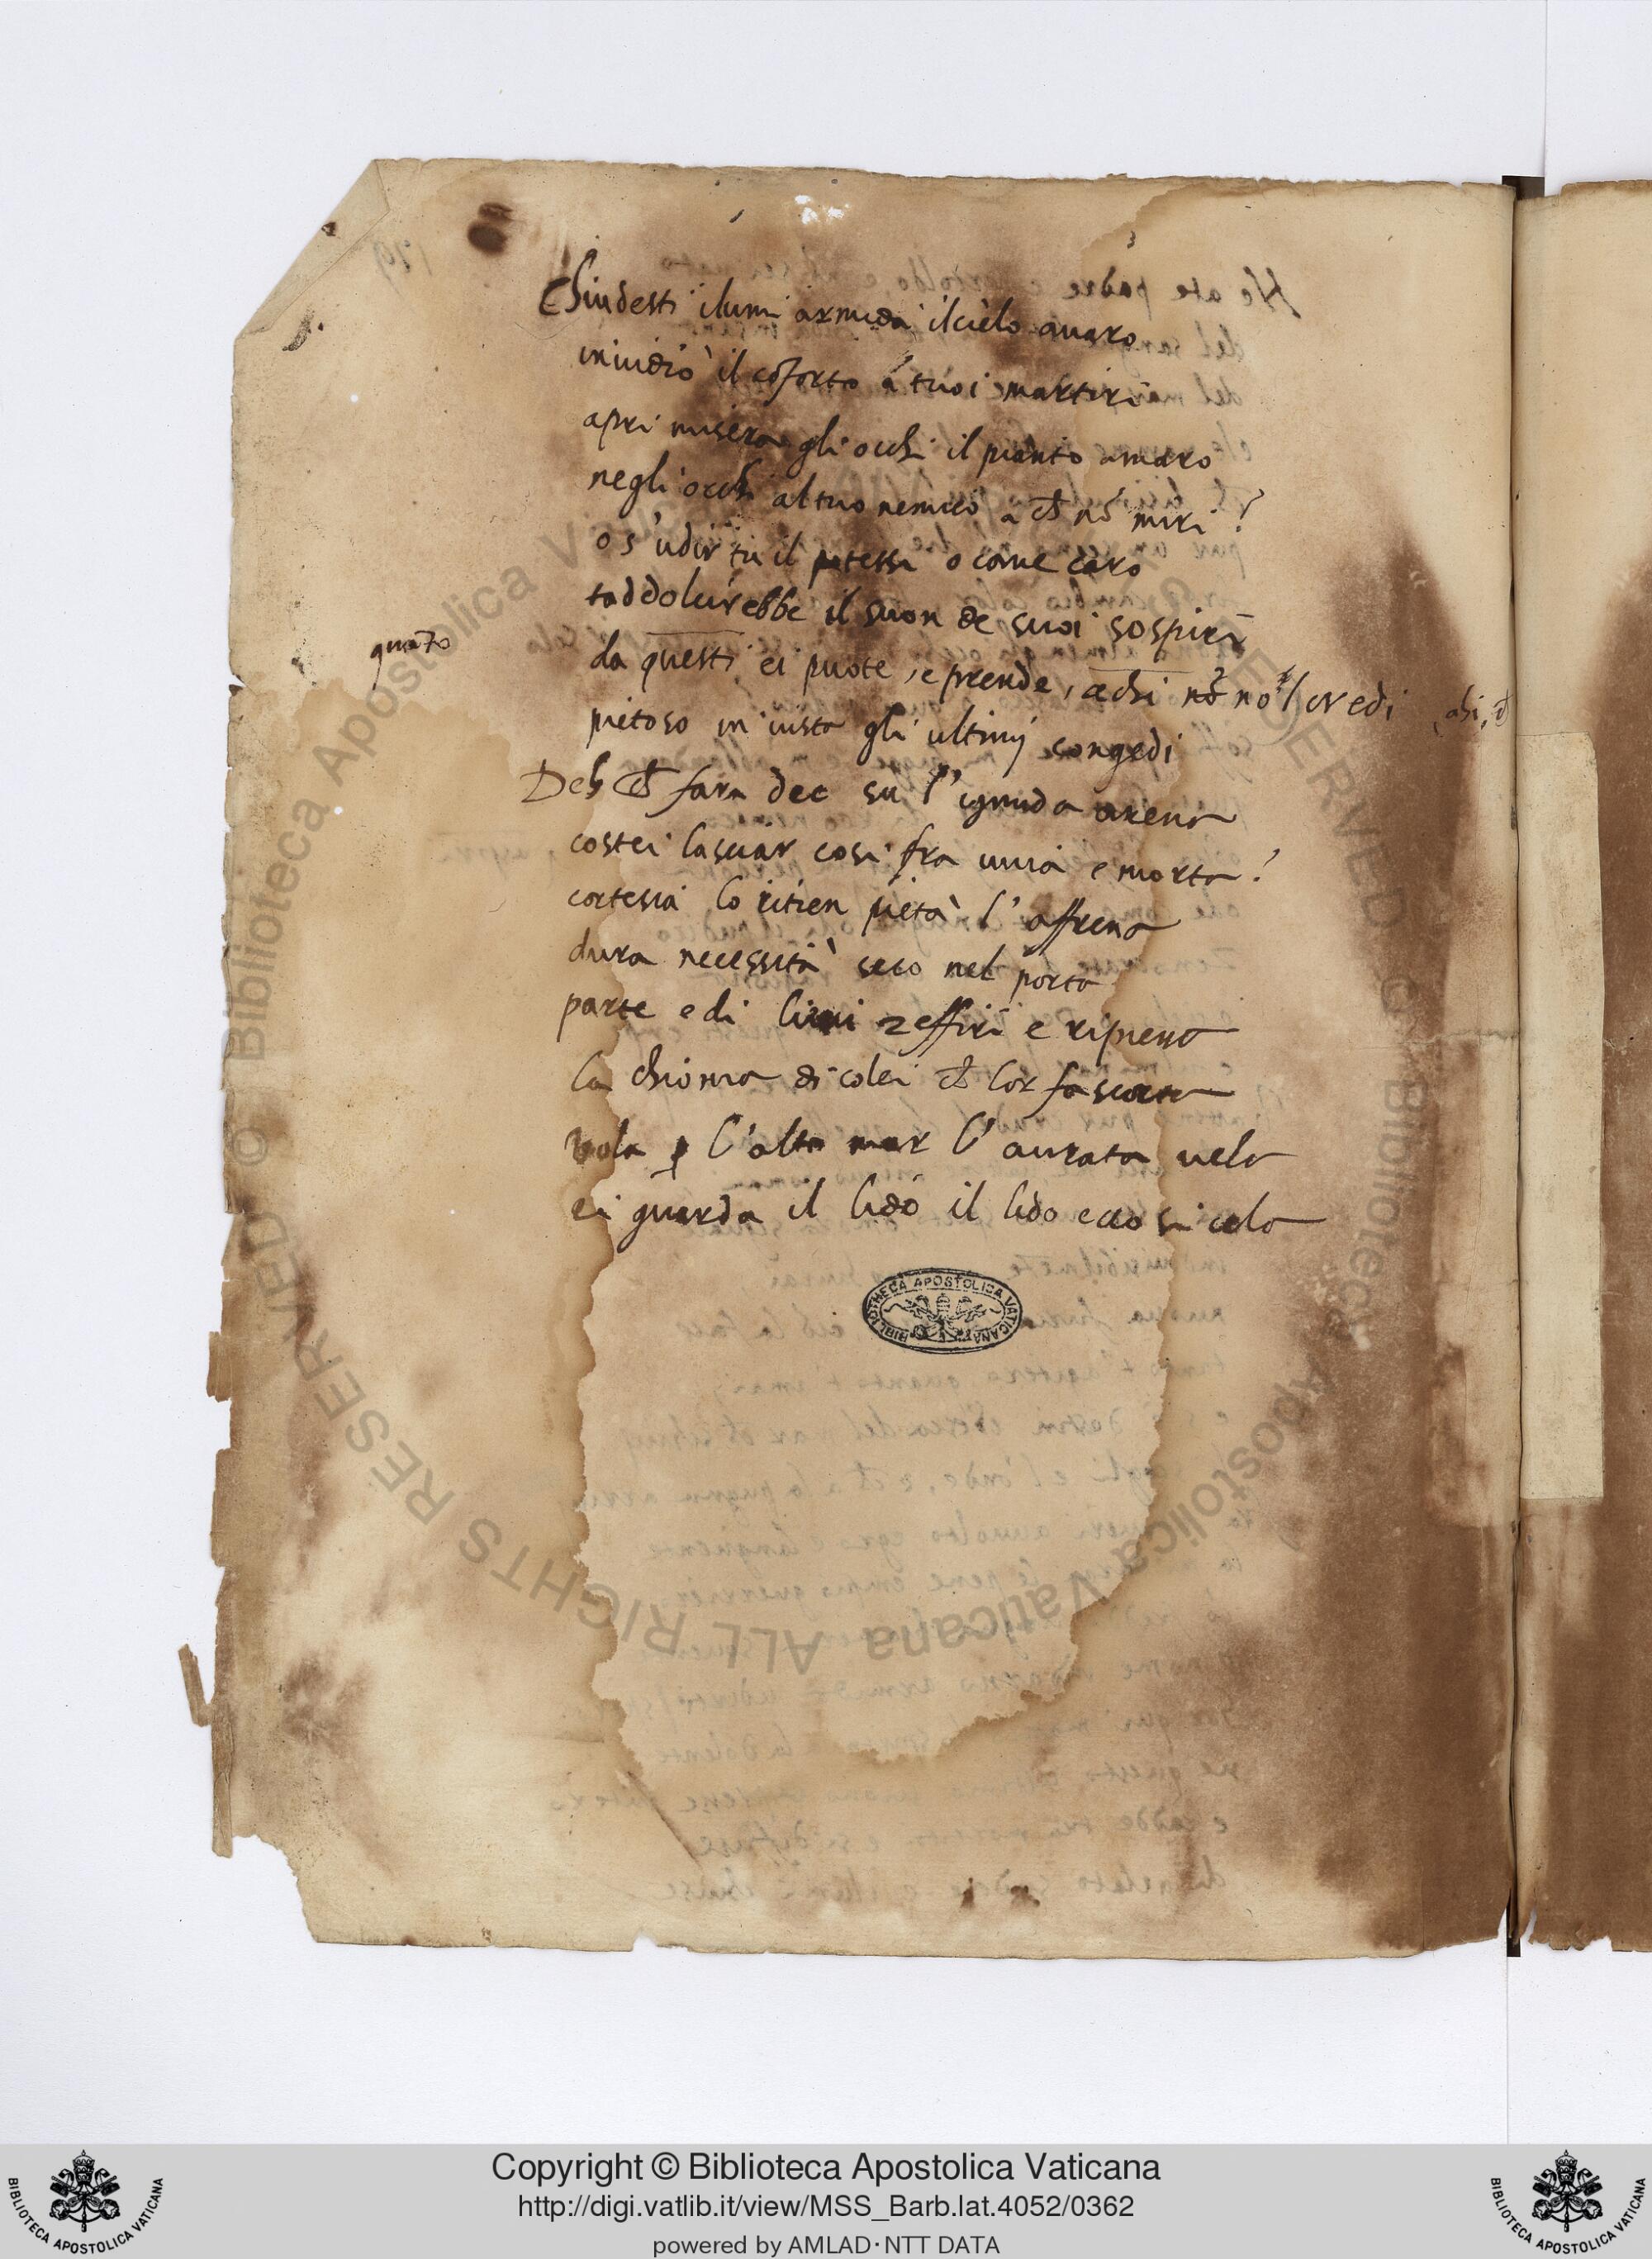 Chiudesti ilumi armida il cielo avaro
invidiò il cõforto à tuoi martiri
apri misera gli occhi il pianto amaro
negli occhi al tuo nemico a chẽ nõ miri?
o s'udir tu il potessi o come caro
taddolcirebbe il suon de suoi sospiri
quãto
da questi ei puote, e prende, e chi nõ no'l credi
pietoso in vista gli ultimi congedi
Deh chẽ fara dee su l'ignuda arena
costei lasciar cosi fra viva e morta?
cortesia lo ritien pietà l'affrena
dura necessità seco nel porta
parte e di lievi zeffiri e ripiena
la chioma di colei chẽ lor fa scorta
vola ꝑ l'alto mar l'aurata vela
ei guarda il lido il lido ecco si cela
BIBLIOTHECA APOSTOLICA VATICANA
© Biblioteca Apostolica Vaticana ALL RIGHTS RESERVED
Copyright © Biblioteca Apostolica Vaticana
http://digi.vatlib.it/view/MSS_Barb.lat.4052/0362
powered by AMLAD·NTT DATA
BIBLIOTECA APOSTOLICA VATICANA
BIBLIOTECA APOSTOLICA VATICANA